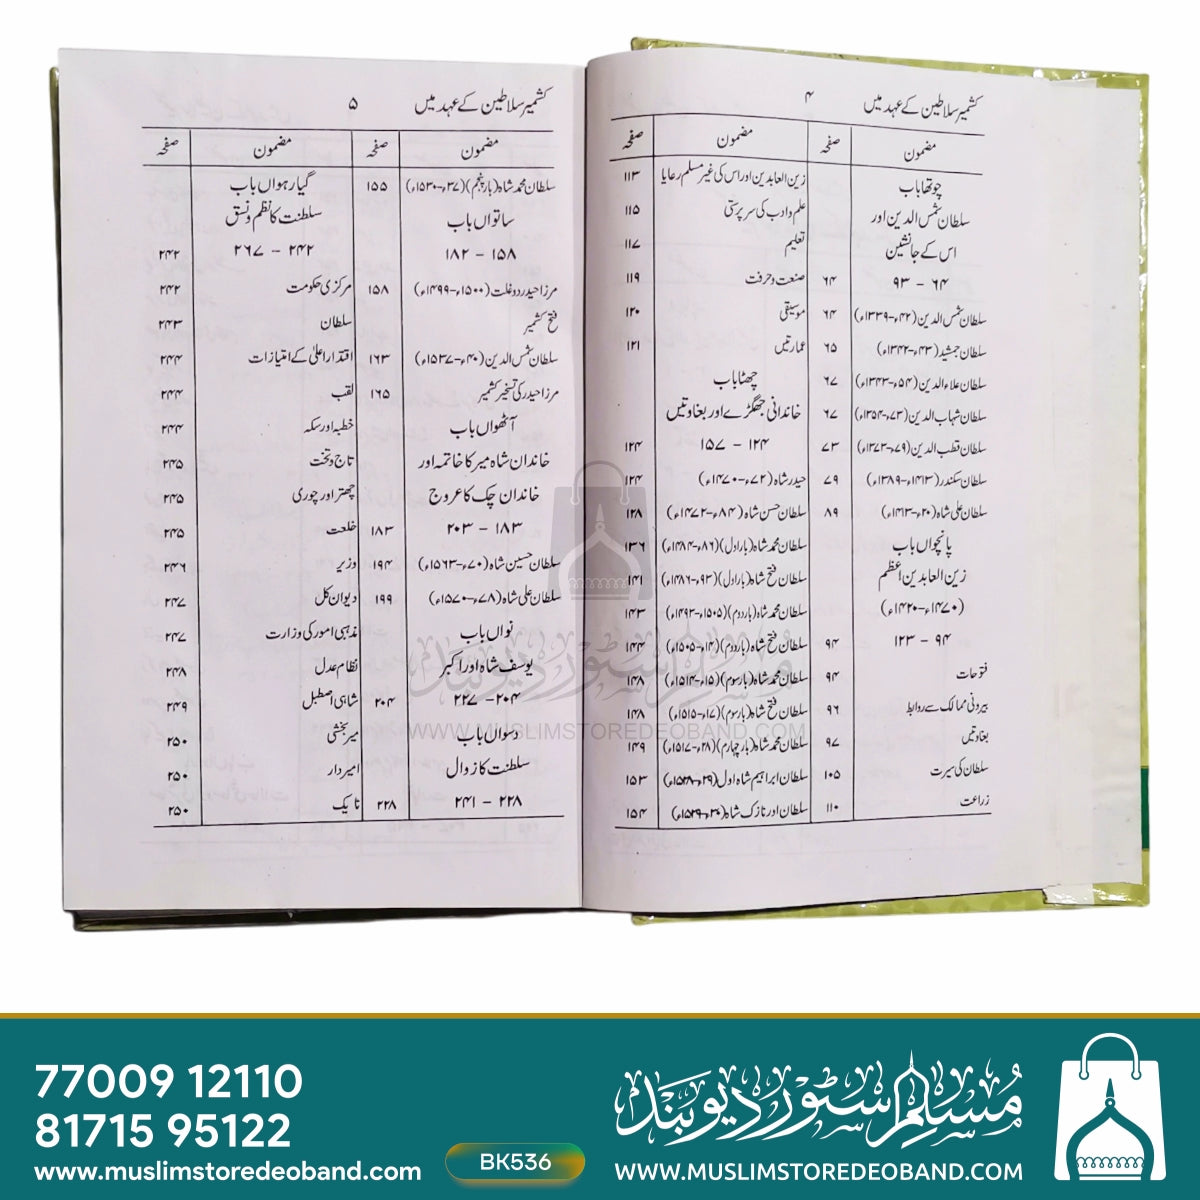 کشمیر سلاطین کے عہد میں ۴
مضمون صفحہ مضمون صفحہ
چوتھا باب
سلطان شمس الدین اور
اس کے جانشین
۶۴ - ۹۳ ۶۴
سلطان شمس الدین (۴۲ء-۱۳۳۹ء) ۶۴
سلطان جمشید (۴۳ء-۱۳۴۲ء) ۶۵
سلطان علاء الدین (۵۴ء-۱۳۴۳ء) ۶۷
سلطان شہاب الدین (۷۳ء-۱۳۵۴ء) ۶۷
سلطان قطب الدین (۷۹ء-۱۳۷۳ء) ۷۳
سلطان سکندر (۱۴۱۳ء-۱۳۸۹ء) ۷۹
سلطان علی شاہ (۲۰ء-۱۴۱۳ء) ۸۹
پانچواں باب
زین العابدین اعظم
(۱۴۷۰ء-۱۴۲۰ء)
۹۴ - ۱۲۳ ۹۴
فتوحات ۹۴
بیرونی ممالک سے روابط ۹۶
بغاوتیں ۹۷
سلطان کی سیرت ۱۰۵
زراعت ۱۱۰
زین العابدین اور اس کی غیر مسلم رعایا ۱۱۳
علم و ادب کی سرپرستی ۱۱۵
تعلیم ۱۱۷
صنعت و حرفت ۱۱۹
موسیقی ۱۲۰
عمارتیں ۱۲۱
چھٹا باب
خاندانی جھگڑے اور بغاوتیں
۱۲۴ - ۱۵۷ ۱۲۴
حیدر شاہ (۷۲ء-۱۴۷۰ء) ۱۲۴
سلطان حسن شاہ (۸۴ء-۱۴۷۲ء) ۱۲۸
سلطان محمد شاہ (بار اول) (۸۶ء-۱۴۸۴ء) ۱۳۶
سلطان فتح شاہ (بار اول) (۹۳ء-۱۴۸۶ء) ۱۴۱
سلطان محمد شاہ (بار دوم) (۱۵۰۵ء-۱۴۹۳ء) ۱۴۳
سلطان فتح شاہ (بار دوم) (۱۴ء-۱۵۰۵ء) ۱۴۴
سلطان محمد شاہ (بار سوم) (۱۵ء-۱۵۱۴ء) ۱۴۸
سلطان فتح شاہ (بار سوم) (۱۷ء-۱۵۱۵ء) ۱۴۸
سلطان محمد شاہ (بار چہارم) (۲۸ء-۱۵۱۷ء) ۱۴۹
سلطان ابراہیم شاہ اول (۲۹ء-۱۵۲۸ء) ۱۵۳
سلطان اور نازک شاہ (۳۰ء-۱۵۲۹ء) ۱۵۴
کشمیر سلاطین کے عہد میں ۵
مضمون صفحہ مضمون صفحہ
سلطان محمد شاہ (بار پنجم) (۳۷ء-۱۵۳۰ء) ۱۵۵
ساتواں باب
۱۵۸ - ۱۸۲
مرزا حیدر دوغلت (۱۵۰۰ء-۱۴۹۹ء) ۱۵۸
فتح کشمیر
سلطان شمس الدین (۴۰ء-۱۵۳۷ء) ۱۶۳
مرزا حیدر کی تسخیر کشمیر ۱۶۵
آٹھواں باب
خاندان شاہ میر کا خاتمہ اور
خاندان چک کا عروج
۱۸۳ - ۲۰۳ ۱۸۳
سلطان حسین شاہ (۷۰ء-۱۵۶۳ء) ۱۹۴
سلطان علی شاہ (۷۸ء-۱۵۷۰ء) ۱۹۹
نواں باب
یوسف شاہ اور اکبر
۲۰۴ - ۲۲۷ ۲۰۴
دسواں باب
سلطنت کا زوال
۲۲۸ - ۲۴۱ ۲۲۸
گیارہواں باب
سلطنت کا نظم و نسق
۲۴۲ - ۲۶۷ ۲۴۲
مرکزی حکومت ۲۴۲
سلطان ۲۴۳
اقتدار اعلیٰ کے امتیازات ۲۴۴
لقب ۲۴۴
خطبہ اور سکہ ۲۴۴
تاج و تخت ۲۴۵
چھتر اور چوری ۲۴۵
خلعت ۲۴۵
وزیر ۲۴۶
دیوان کل ۲۴۷
مذہبی امور کی وزارت ۲۴۷
نظام عدل ۲۴۸
شاہی اصطبل ۲۴۹
میر بخشی ۲۵۰
امیر دار ۲۵۰
نایک ۲۵۰
مسلم سٹور دیوبند
WWW.MUSLIMSTOREDEOBAND.COM
77009 12110
81715 95122
www.muslimstoredeoband.com
BK536
مسلم سٹور دیوبند
WWW.MUSLIMSTOREDEOBAND.COM